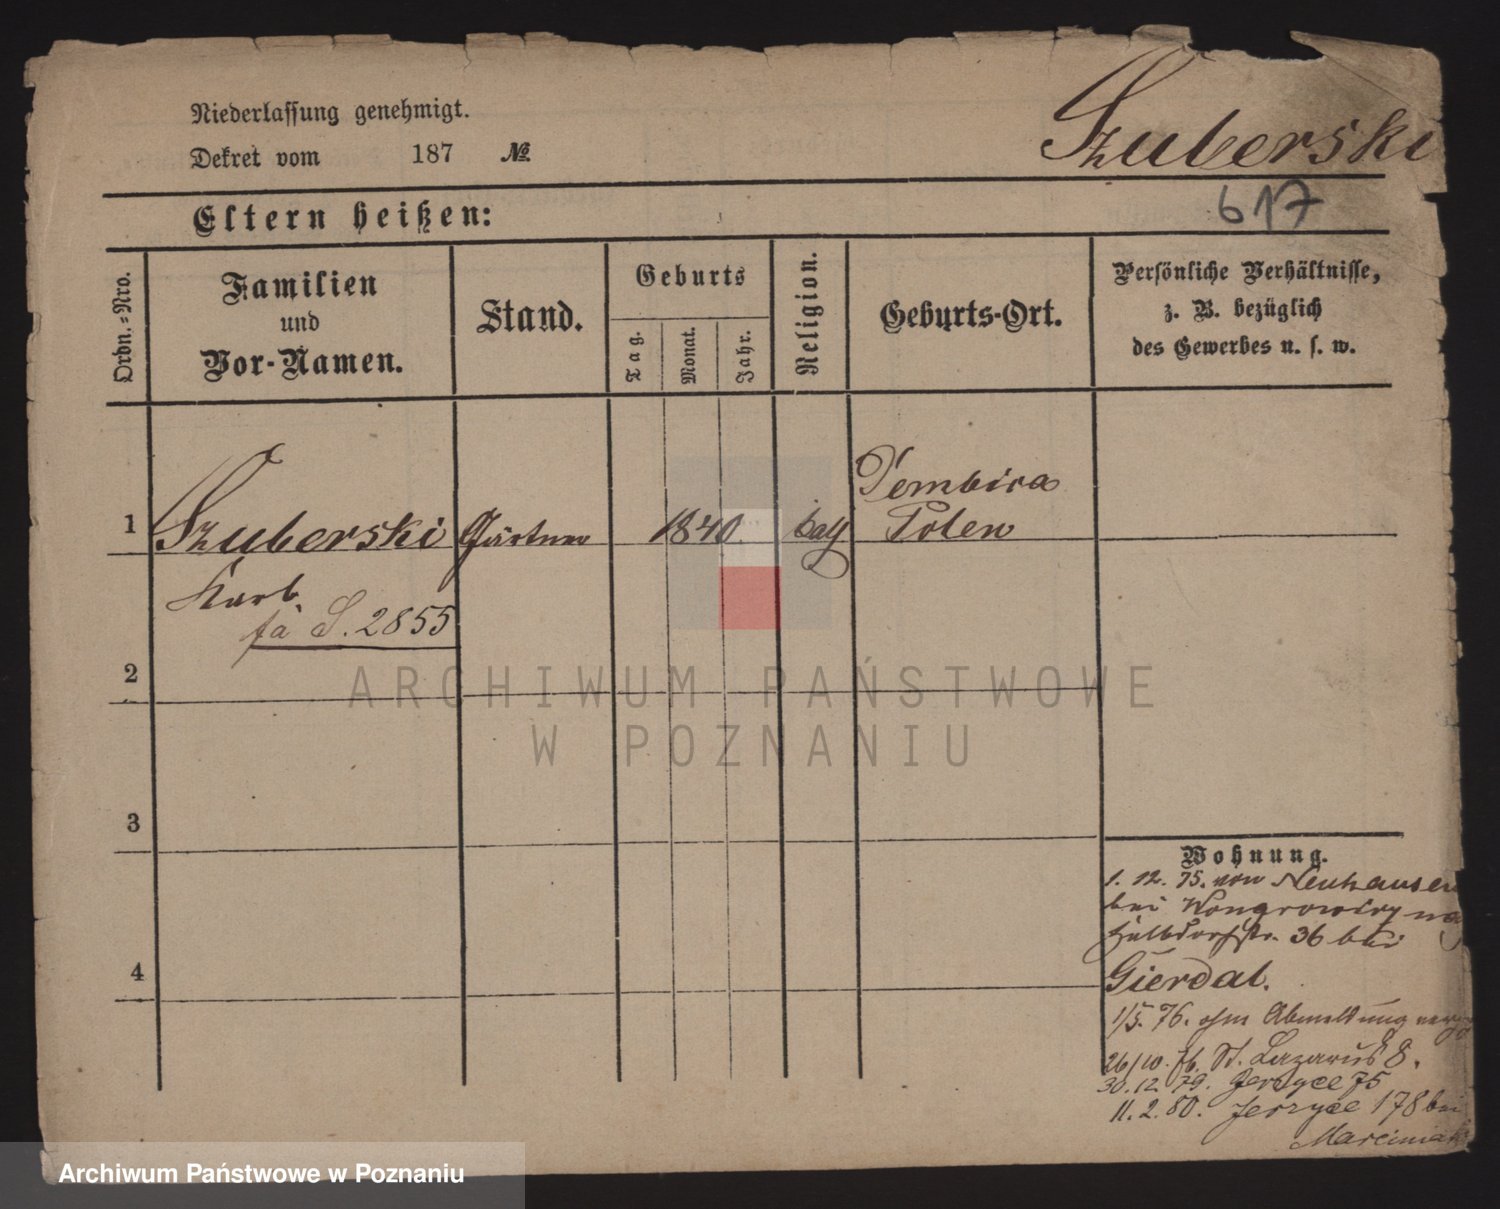 Niederlassung genehmigt.
Dekret vom 187 №
Szuberski
617
Eltern heißen:
Ordn.=Nro.
Familien
und
Vor-Namen.
Stand.
Geburts
Tag.
Monat.
Jahr.
Religion.
Geburts-Ort.
Persönliche Verhältnisse,
z. B. bezüglich
des Gewerbes u. s. w.
1 Szuberski Gärtner 1840.
Polen
S. 2855
2
3
4
Wohnung.
1. 12. 75. von Neuhausen
bei Wongrowiec
36 bei
Gierdal.
1/5. 76. ohne Abmeldung
26/10. St. Lazarus 8.
30. 12. 79. Jerzyce 75
11. 2. 80. Jerzyce 178 bei
Marciniak
ARCHIWUM PAŃSTWOWE
W POZNANIU
Archiwum Państwowe w Poznaniu